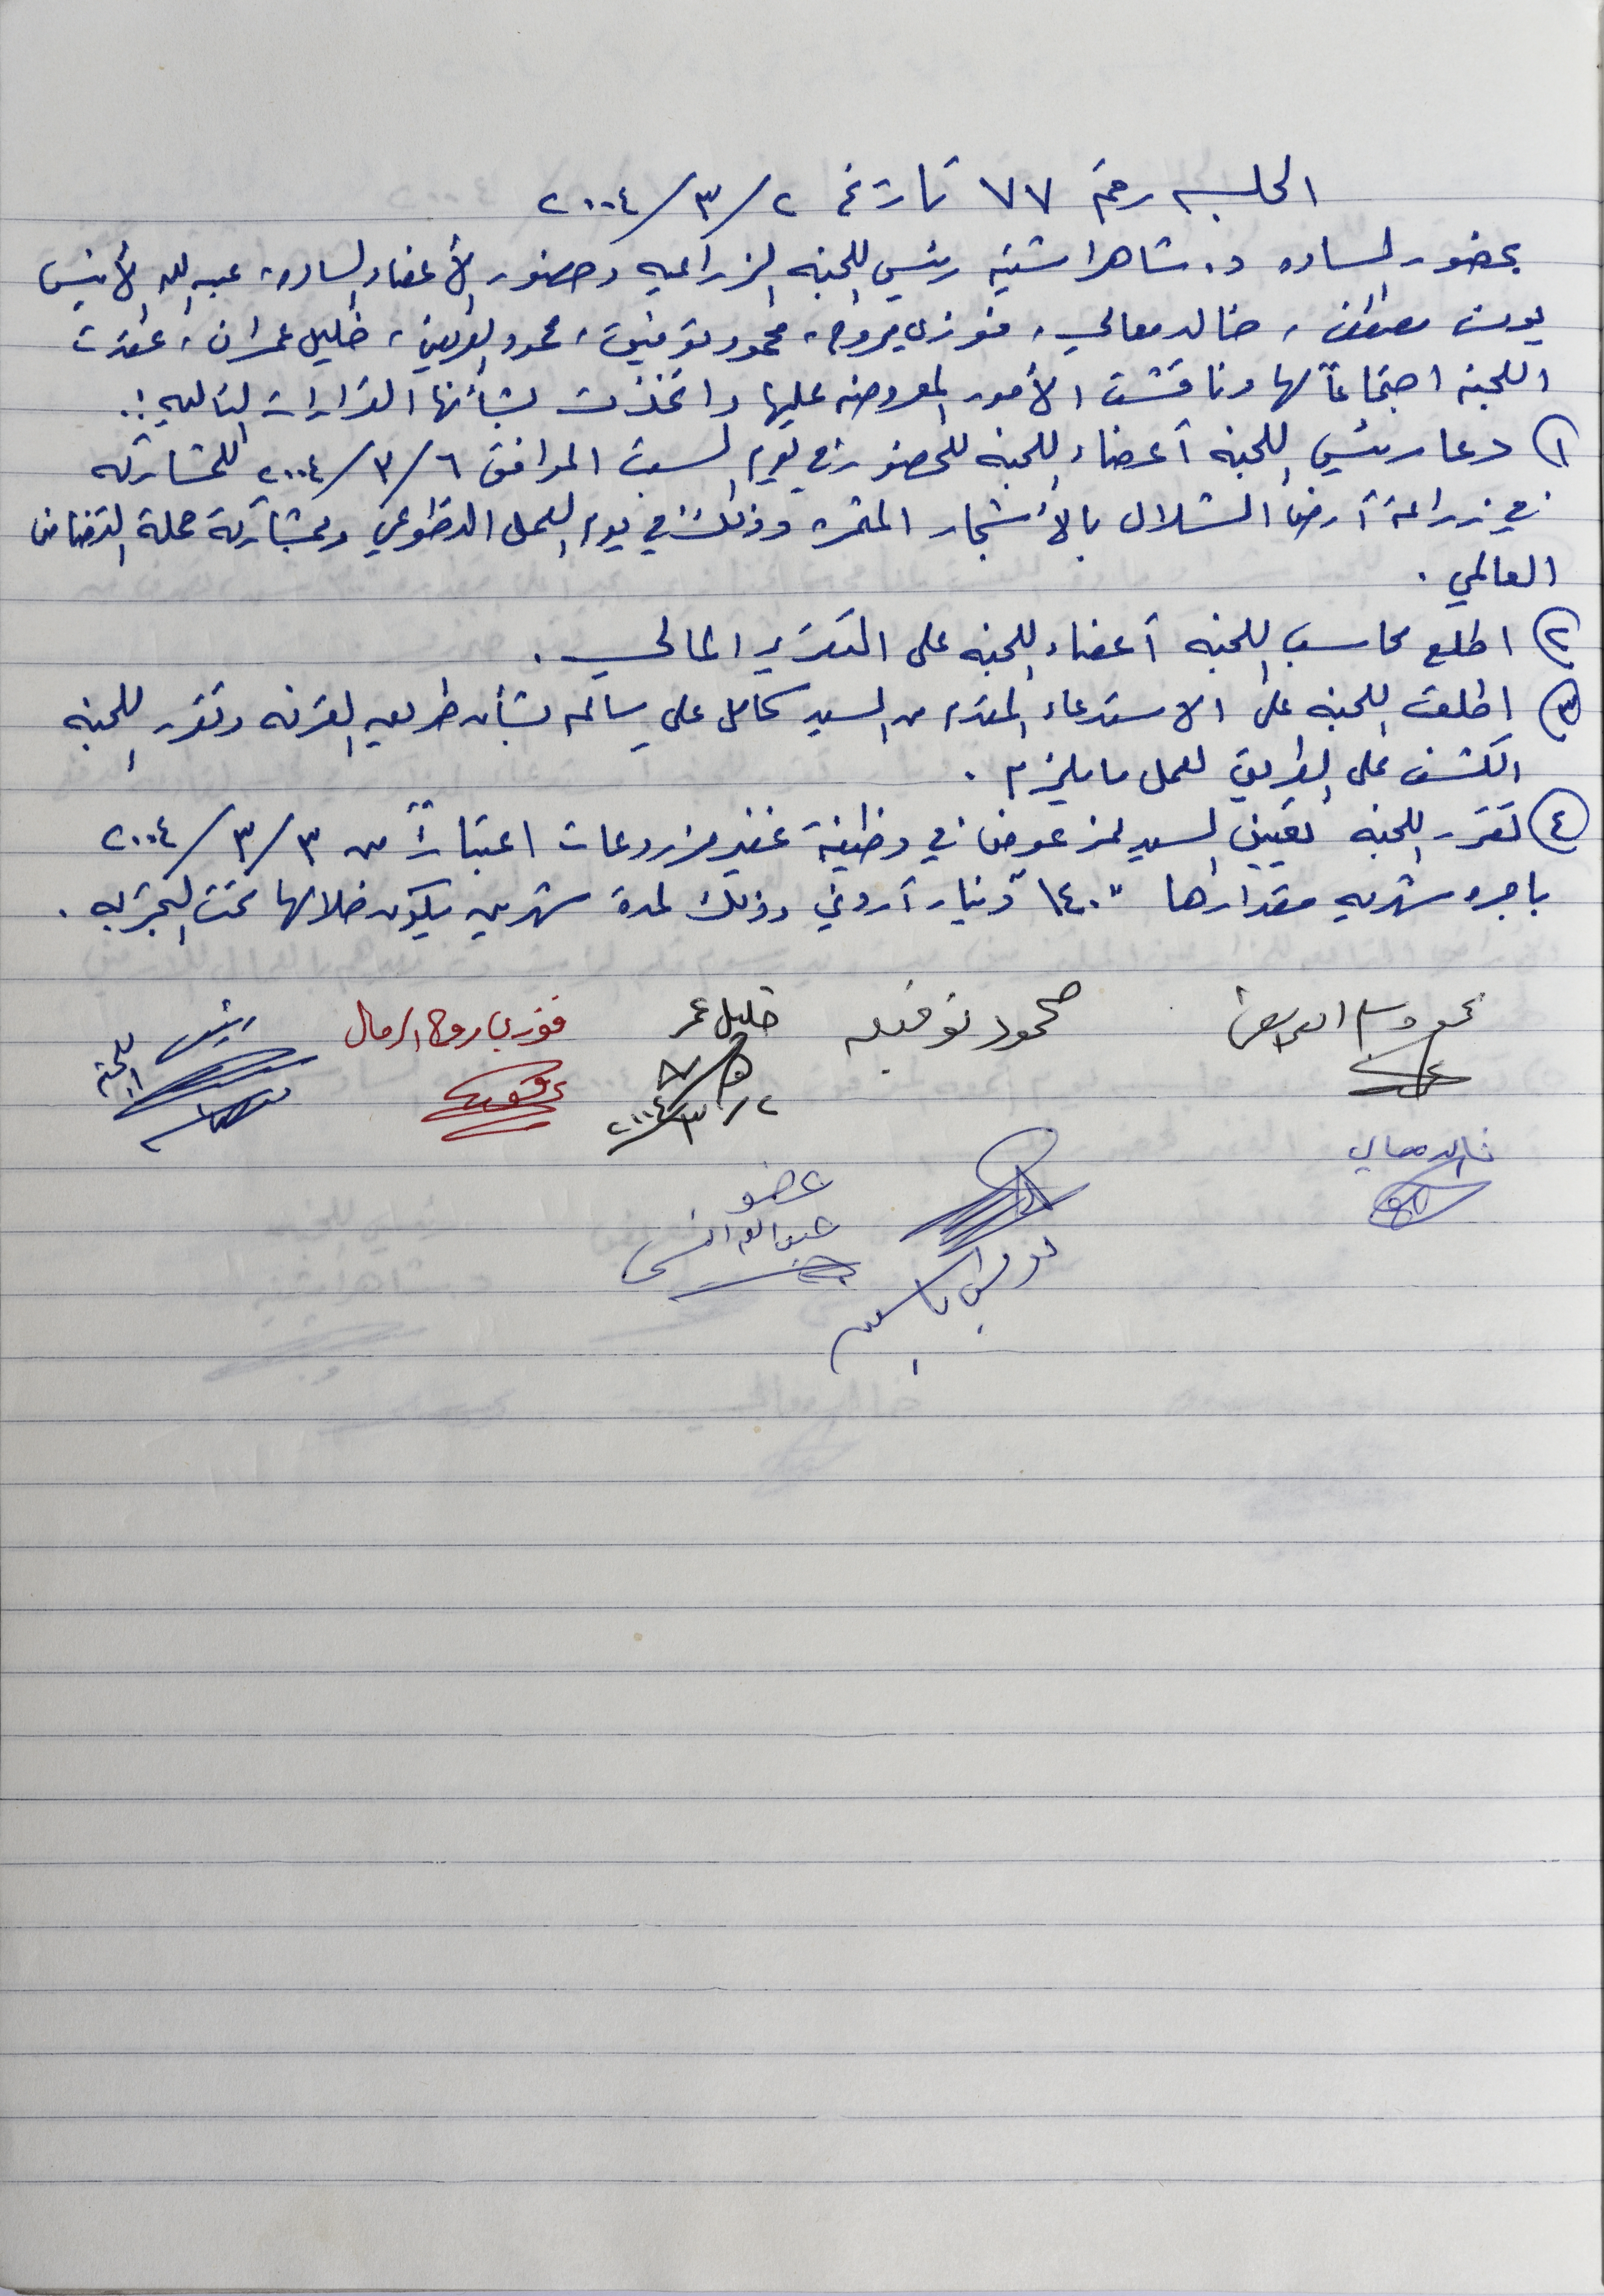 الجلسه رقم ٧٧ تاريخ ٢/٣/٢٠٠٤
بحضور الساده د. شاهر اشتيه رئيس اللجنه الزراعيه وحضور الأعضاء الساده، عبد الله الأنيس
يونس مصطفى، خالد معالي، فوزي يروح، محمود توفيق، محمود العريض، خليل عمران، عقدت
اللجنه اجتماعاً لها وناقشت الأمور المعروضه عليها واتخذت بشأنها القرارات التاليه :.
١) دعا رئيس اللجنه أعضاء اللجنه للحضور في يوم السبت الموافق ٦/٣/٢٠٠٤ للمشاركه
في زراعة أرض الشلال بالأشجار المثمره وذلك في يوم العمل التطوعي وبمشاركة حملة التضامن
العالمي .
٢) اطلع محاسب اللجنه أعضاء اللجنه على التقرير المالي .
٣) اطلعت اللجنه على الاستدعاء المقدم من السيد كامل علي سالم بشأن طريق القرنه وتقرر اللجنه
الكشف على الطريق لعمل ما يلزم .
٤) تقرر اللجنه تعيين السيد عوض في وظيفة غفير مزروعات اعتباراً من ٣/٣/٢٠٠٤
باجره شهريه مقدارها "١٤٠" دينار أردني وذلك لمدة شهرين يكون خلالها تحت التجربه .
محمود توفيق
خليل عمر
فوزي يروح الرمال
رئيس اللجنه
٢/٣/٢٠٠٤
خالد معالي
عضو
عبد الله انيس